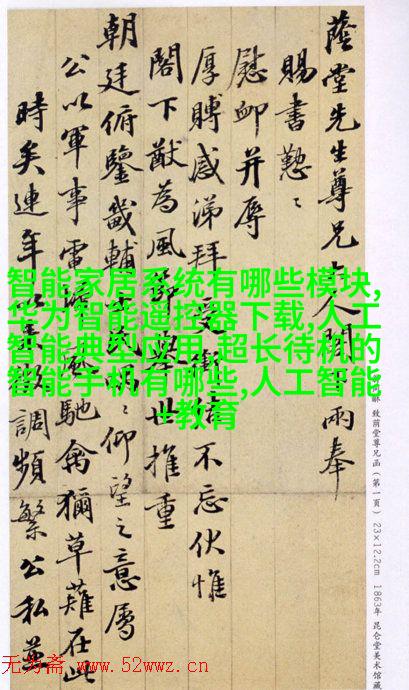 蔭堂先生尊兄大人閣下兩奉
賜書懃〻
慰卹并辱
厚賻感涕拜受銜結不忘伏惟
閣下猷為風節舉世推重
朝廷俯鑒畿輔〻仰望之意屬
公以軍事雷馳禽獮草薙在此
時矣連年以調頻繁公私並
智能家居系统有哪些模块,
华为智能遥控器下载,人工
智能典型应用,超长待机的
智能手机有哪些,人工智能
+教育
致蔭堂尊兄函（第一頁） 23×12.2cm 1863年 昆仑堂美术馆藏
无为斋 www.52wwz.cn